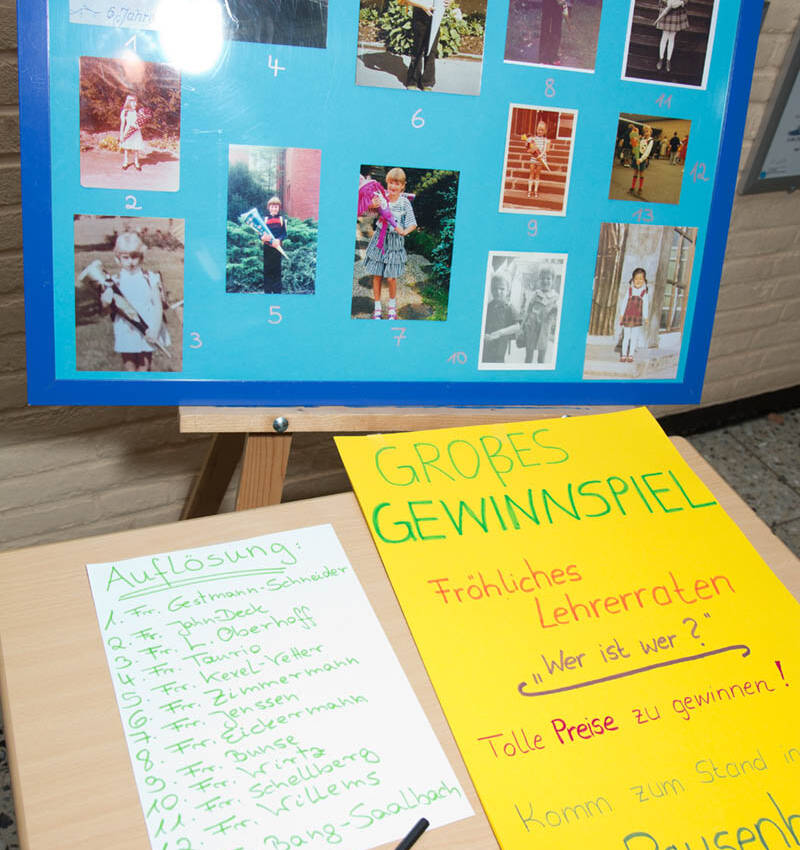 6 Jahre
1
4
6
8
11
2
5
7
9
12
13
3
10
Auflösung:
1. Fr. Gestmann-Schneider
2. Fr. Jahn-Deck
3. Fr. L. Oberhoff
4. Fr. Taurio
5. Frr. Kexel-Vetter
6. Fr. Zimmermann
7. Frr. Jenssen
8. Frr. Eickermann
9. Frr. Bunse
10. Frr. Wirtz
11. Frr. Schellberg
12. Frr. Willems
Bang-Saalbach
GROßES
GEWINNSPIEL
Fröhliches
Lehrerraten
„Wer ist wer?"
Tolle Preise zu gewinnen!
Komm zum Stand in